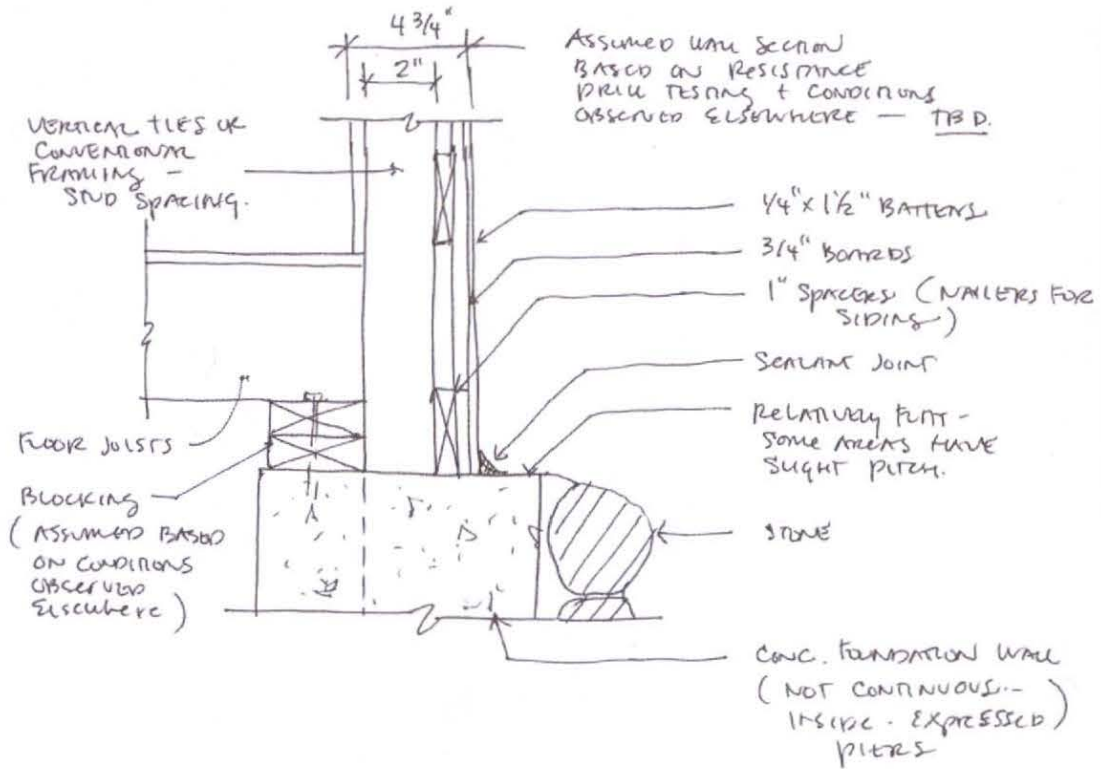 4 3/4"
2"
ASSUMED WALL SECTION
BASED ON RESISTANCE
DRILL TESTING + CONDITIONS
OBSERVED ELSEWHERE — TBD.
VERTICAL TIES OR
CONVENTIONAL
FRAMING -
STUD SPACING.
1/4" x 1 1/2" BATTENS
3/4" BOARDS
1" SPACERS (NAILERS FOR
SIDING)
SEALANT JOINT
RELATIVELY FLAT -
SOME AREAS HAVE
SLIGHT PITCH.
FLOOR JOISTS
BLOCKING
(ASSUMED BASED
ON CONDITIONS
OBSERVED
ELSEWHERE)
STONE
CONC. FOUNDATION WALL
(NOT CONTINUOUS --
INSIDE - EXPRESSED)
PIERS